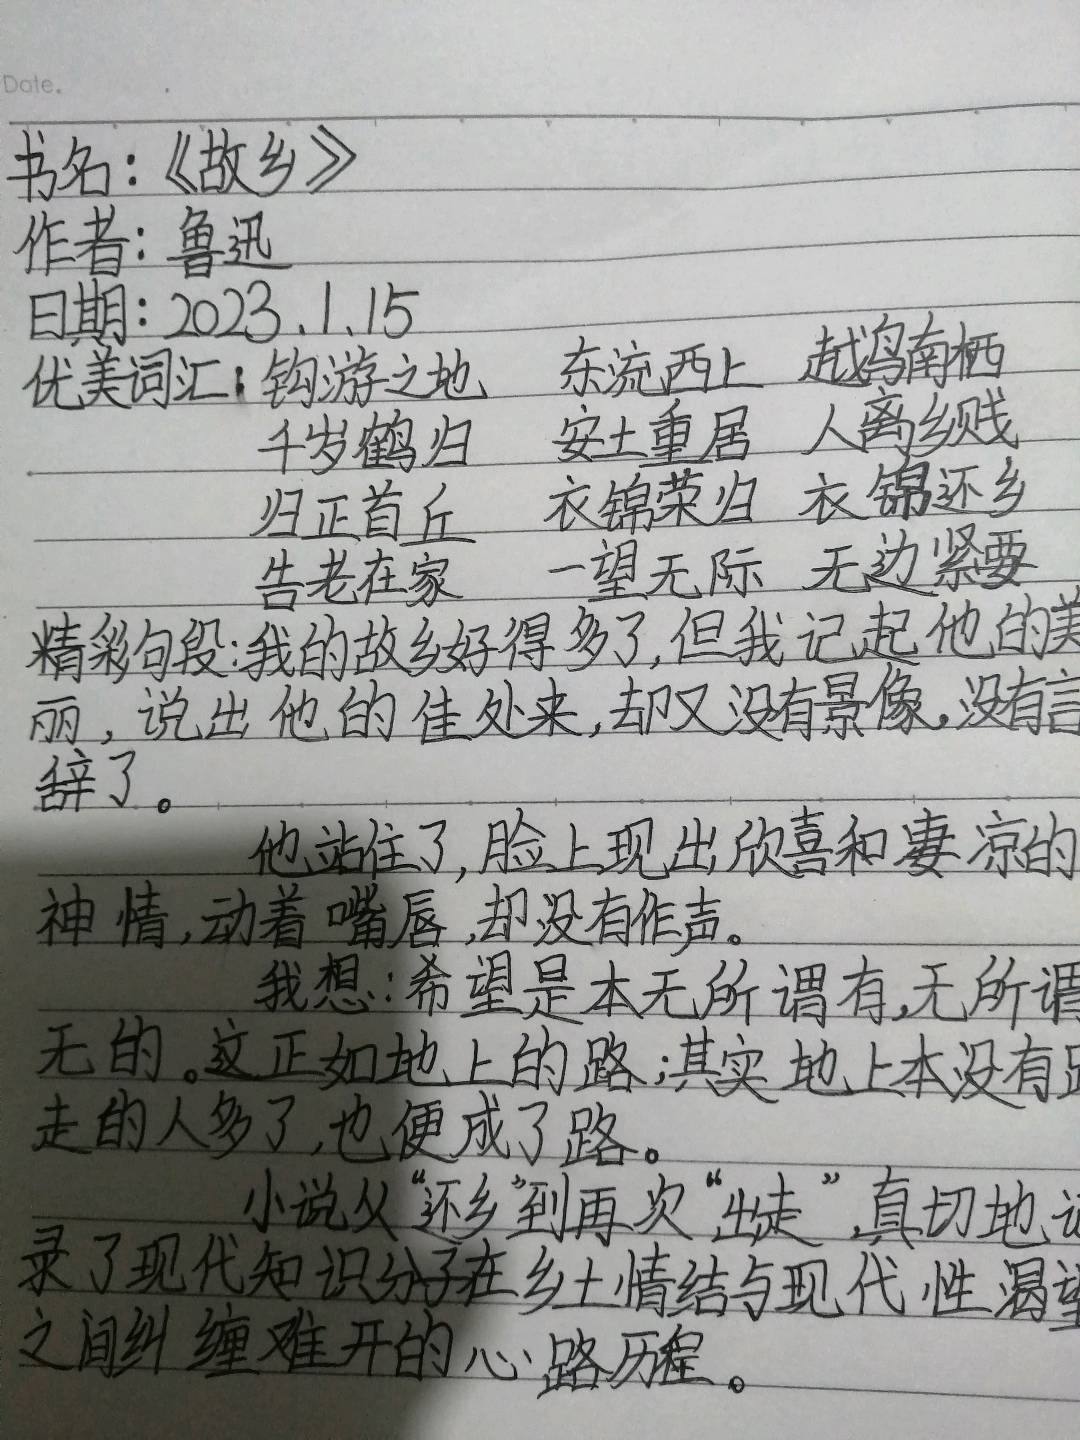 Date.
书名：《故乡》
作者：鲁迅
日期：2023.1.15
优美词汇：钩游之地 东流西上 越鸟南栖
千岁鹤归 安土重居 人离乡贱
归正首丘 衣锦荣归 衣锦还乡
告老在家 一望无际 无边紧要
精彩句段：我的故乡好得多了，但我记起他的美
丽，说出他的佳处来，却又没有景像，没有言
辞了。
他站住了，脸上现出欣喜和凄凉的
神情，动着嘴唇，却没有作声。
我想：希望是本无所谓有，无所谓
无的。这正如地上的路；其实地上本没有路
走的人多了，也便成了路。
小说从“还乡”到再次“出走”，真切地记
录了现代知识分子在乡土情结与现代性渴望
之间纠缠难开的心路历程。